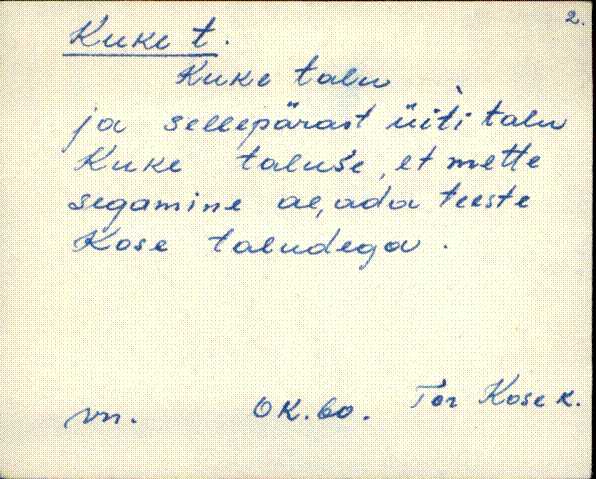 2.
Kuke t.
Kuke talu
ja sellepärast üiti talu
Kuke taluse, et mette
segamine ae, ada teeste
Kose taludega.
vn. OK. 60. Tor Kose k.